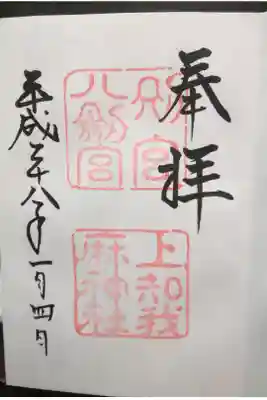 奉拝
別宮
八剣宮
上知我
麻神社
平成二十八年一月四日